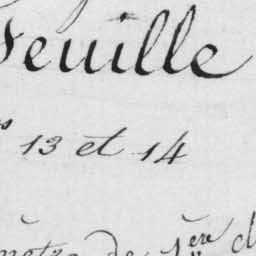 Feuille
13 et 14
de 1ère